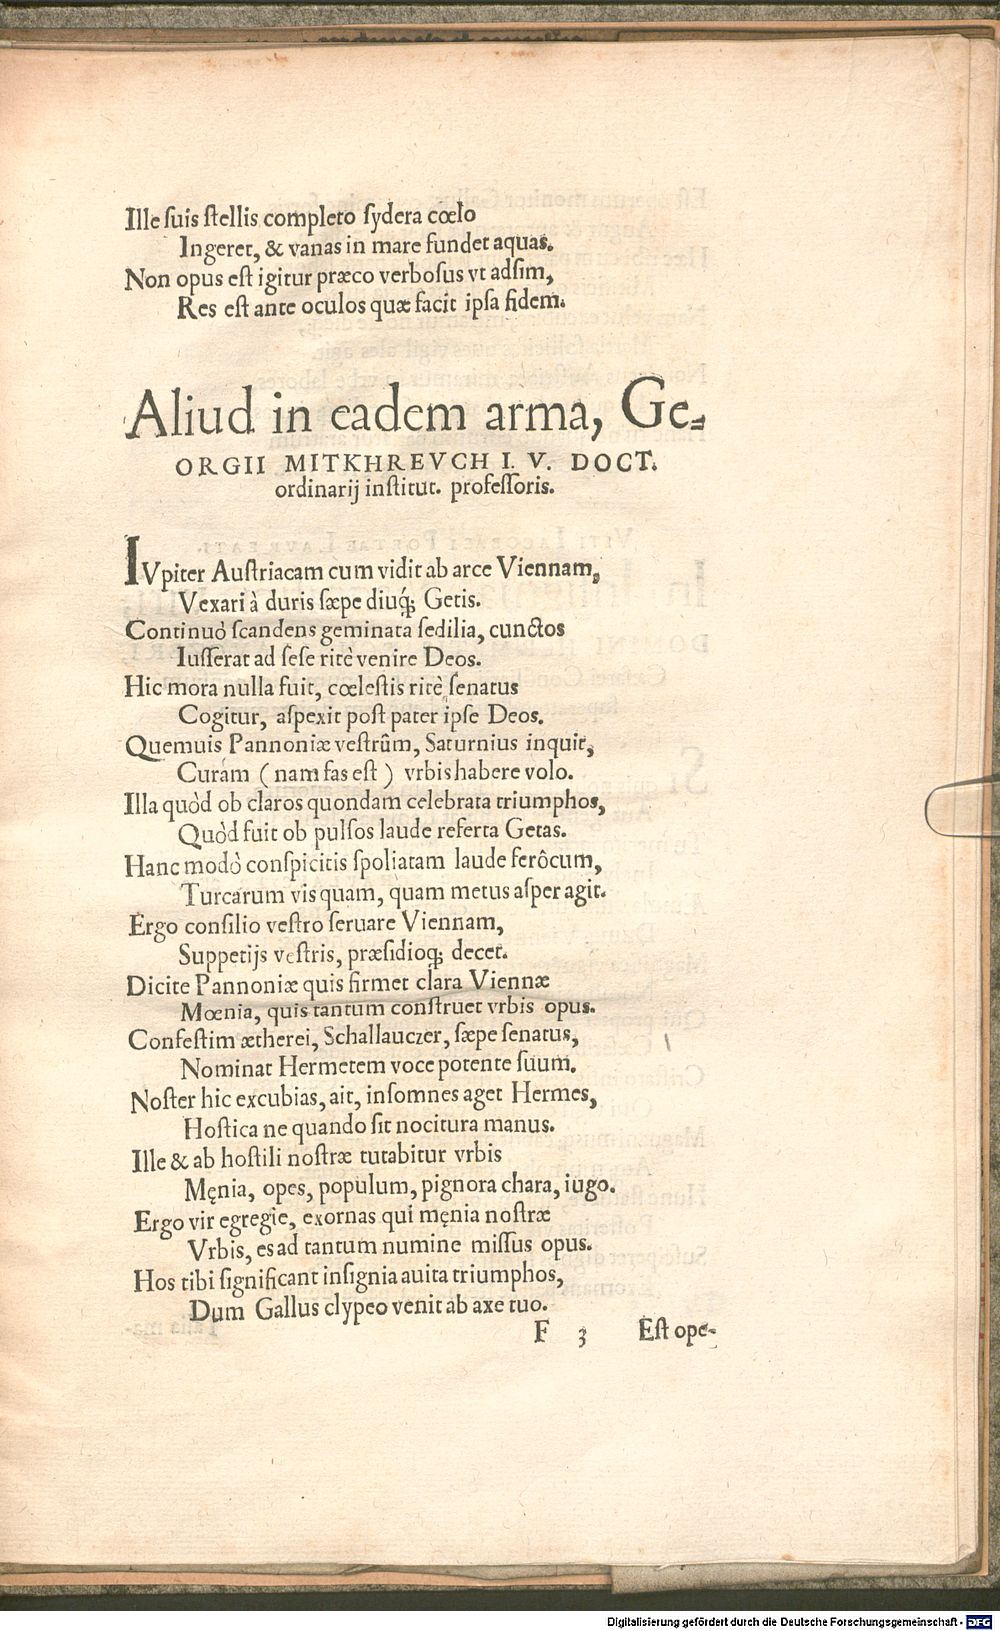 Ille suis stellis completo sydera cœlo
Ingeret, & vanas in mare fundet aquas.
Non opus est igitur præco verbosus vt adsim,
Res est ante oculos quæ facit ipsa fidem.
Aliud in eadem arma, Ge-
ORGII MITKHREVCH I. V. DOCT.
ordinarij institut. professoris.
IVpiter Austriacam cum vidit ab arce Viennam,
Vexari à duris sæpe diuq́; Getis.
Continuò scandens geminata sedilia, cunctos
Iusserat ad sese ritè venire Deos.
Hic mora nulla fuit, cœlestis ritè senatus
Cogitur, aspexit post pater ipse Deos.
Quemuis Pannoniæ vestrûm, Saturnius inquit,
Curam ( nam fas est ) vrbis habere volo.
Illa quòd ob claros quondam celebrata triumphos,
Quòd fuit ob pulsos laude referta Getas.
Hanc modò conspicitis spoliatam laude ferôcum,
Turcarum vis quam, quam metus asper agit.
Ergo consilio vestro seruare Viennam,
Suppetijs vestris, præsidioq; decet.
Dicite Pannoniæ quis firmet clara Viennæ
Mœnia, quis tantum construet vrbis opus.
Confestim ætherei, Schallauczer, sæpe senatus,
Nominat Hermetem voce potente suum.
Noster hic excubias, ait, insomnes aget Hermes,
Hostica ne quando sit nocitura manus.
Ille & ab hostili nostræ tutabitur vrbis
Męnia, opes, populum, pignora chara, iugo.
Ergo vir egregie, exornas qui męnia nostræ
Vrbis, es ad tantum numine missus opus.
Hos tibi significant insignia auita triumphos,
Dum Gallus clypeo venit ab axe tuo.
F 3 Est ope-
Digitalisierung gefördert durch die Deutsche Forschungsgemeinschaft - DFG